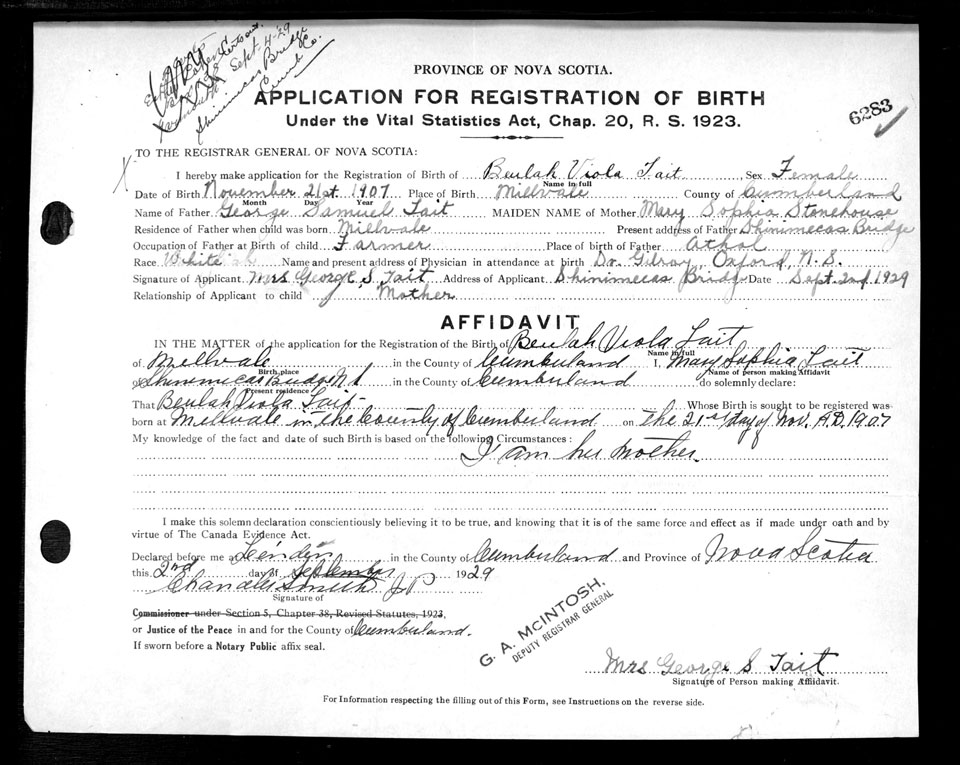 Sept. 4-29
Shinimicas Bridge
Cumb Co.
PROVINCE OF NOVA SCOTIA.
APPLICATION FOR REGISTRATION OF BIRTH
Under the Vital Statistics Act, Chap. 20, R. S. 1923.
6283
TO THE REGISTRAR GENERAL OF NOVA SCOTIA:
I hereby make application for the Registration of Birth of Beulah Viola Tait Sex Female
Name in full
Date of Birth November 21st. 1907 Place of Birth Millvale County of Cumberland
Month Day Year
Name of Father George Samuel Tait MAIDEN NAME of Mother Mary Sophia Stonehouse
Residence of Father when child was born Millvale Present address of Father Shinimecas Bridge
Occupation of Father at Birth of child Farmer Place of birth of Father Athol
Race White Name and present address of Physician in attendance at birth Dr. Gilroy, Oxford, N. S.
Signature of Applicant Mrs George S Tait Address of Applicant Shinimecas Bridge Date Sept. 2nd 1929
Relationship of Applicant to child Mother
AFFIDAVIT
IN THE MATTER of the application for the Registration of the Birth of Beulah Viola Tait
Name in full
of Millvale in the County of Cumberland I, Mary Sophia Tait
Birth place Name of person making Affidavit
of Shinimicas Bridge N S in the County of Cumberland do solemnly declare:
Present residence
That Beulah Viola Tait Whose Birth is sought to be registered was
born at Millvale in the County of Cumberland on the 21st day of Nov. A.D. 1907
My knowledge of the fact and date of such Birth is based on the following Circumstances:
I am her Mother.
I make this solemn declaration conscientiously believing it to be true, and knowing that it is of the same force and effect as if made under oath and by
virtue of The Canada Evidence Act.
Declared before me at Linden in the County of Cumberland and Province of Nova Scotia
this 2nd day of September 1929
Charles Smith J P
Signature of
Commissioner under Section 5, Chapter 38, Revised Statutes, 1923,
or Justice of the Peace in and for the County of Cumberland.
If sworn before a Notary Public affix seal.
G. A. MCINTOSH,
DEPUTY REGISTRAR GENERAL
Mrs George S Tait
Signature of Person making Affidavit.
For Information respecting the filling out of this Form, see Instructions on the reverse side.